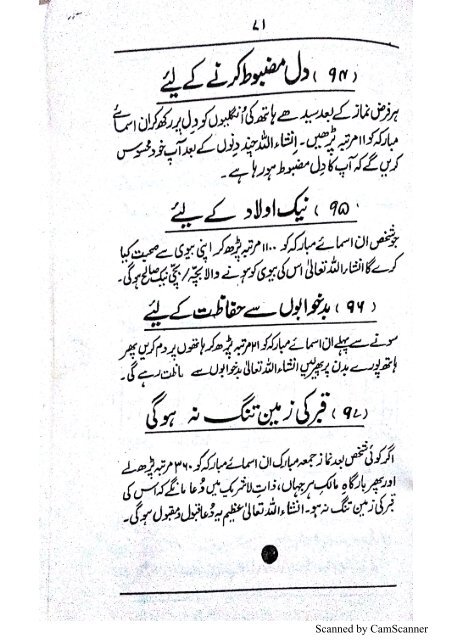 ۷۱
(۹۴) دل مضبوط کرنے کے لیئے
ہر فرض نماز کے بعد سیدھے ہاتھ کی اُنگلیوں کو دل پر رکھ کر ان اسمائے
مبارکہ کو ۱۱ مرتبہ پڑھیں۔ انشاء اللہ چند دِنوں کے بعد آپ خود محسوس
کریں گے کہ آپ کا دِل مضبوط ہو رہا ہے۔
(۹۵) نیک اولاد کے لیئے
جو شخص ان اسمائے مبارکہ کو ۱۱۰۰ مرتبہ پڑھ کر اپنی بیوی سے صحبت کیا
کرے گا انشاء اللہ تعالیٰ اس کی بیوی کو ہونے والا بچّہ/بچّی نیک صالح ہوگی۔
(۹۶) بدخوابوں سے حفاظت کے لیئے
سونے سے پہلے ان اسمائے مبارکہ کو ۲۱ مرتبہ پڑھ کر ہاتھوں پر دم کریں پھر
ہاتھ پورے بدن پر پھیرلیں انشاء اللہ تعالیٰ بدخوابوں سے رہے گی۔
(۹۷) قبر کی زمین تنگ نہ ہوگی
اگر کوئی شخص بعد نماز جمعہ مبارک ان اسمائے مبارکہ کو ۳۶۰ مرتبہ پڑھ لے
اور پھر بارگاہ مالکِ ہر جہاں، ذات لاشریک میں دُعا مانگے کہ اس کی
قبر کی زمین تنگ نہ ہو۔ انشاء اللہ تعالیٰ عظیم یہ دُعا قبول و مقبول ہوگی۔
Scanned by CamScanner